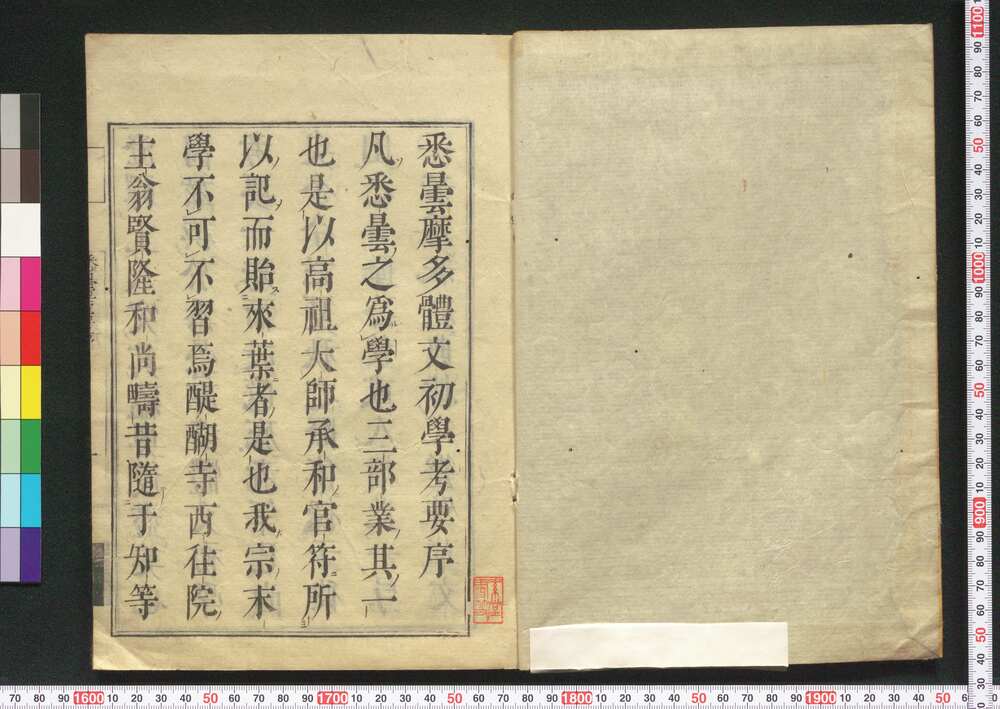 悉曇摩多體文初學考要序
凡悉曇之爲學也三部業其一
也是以高祖大師承和官符所
以記而貽來葉者是也我宗末
學不可不習焉醍醐寺西住院
主翁賢隆和尚疇昔隨于知等